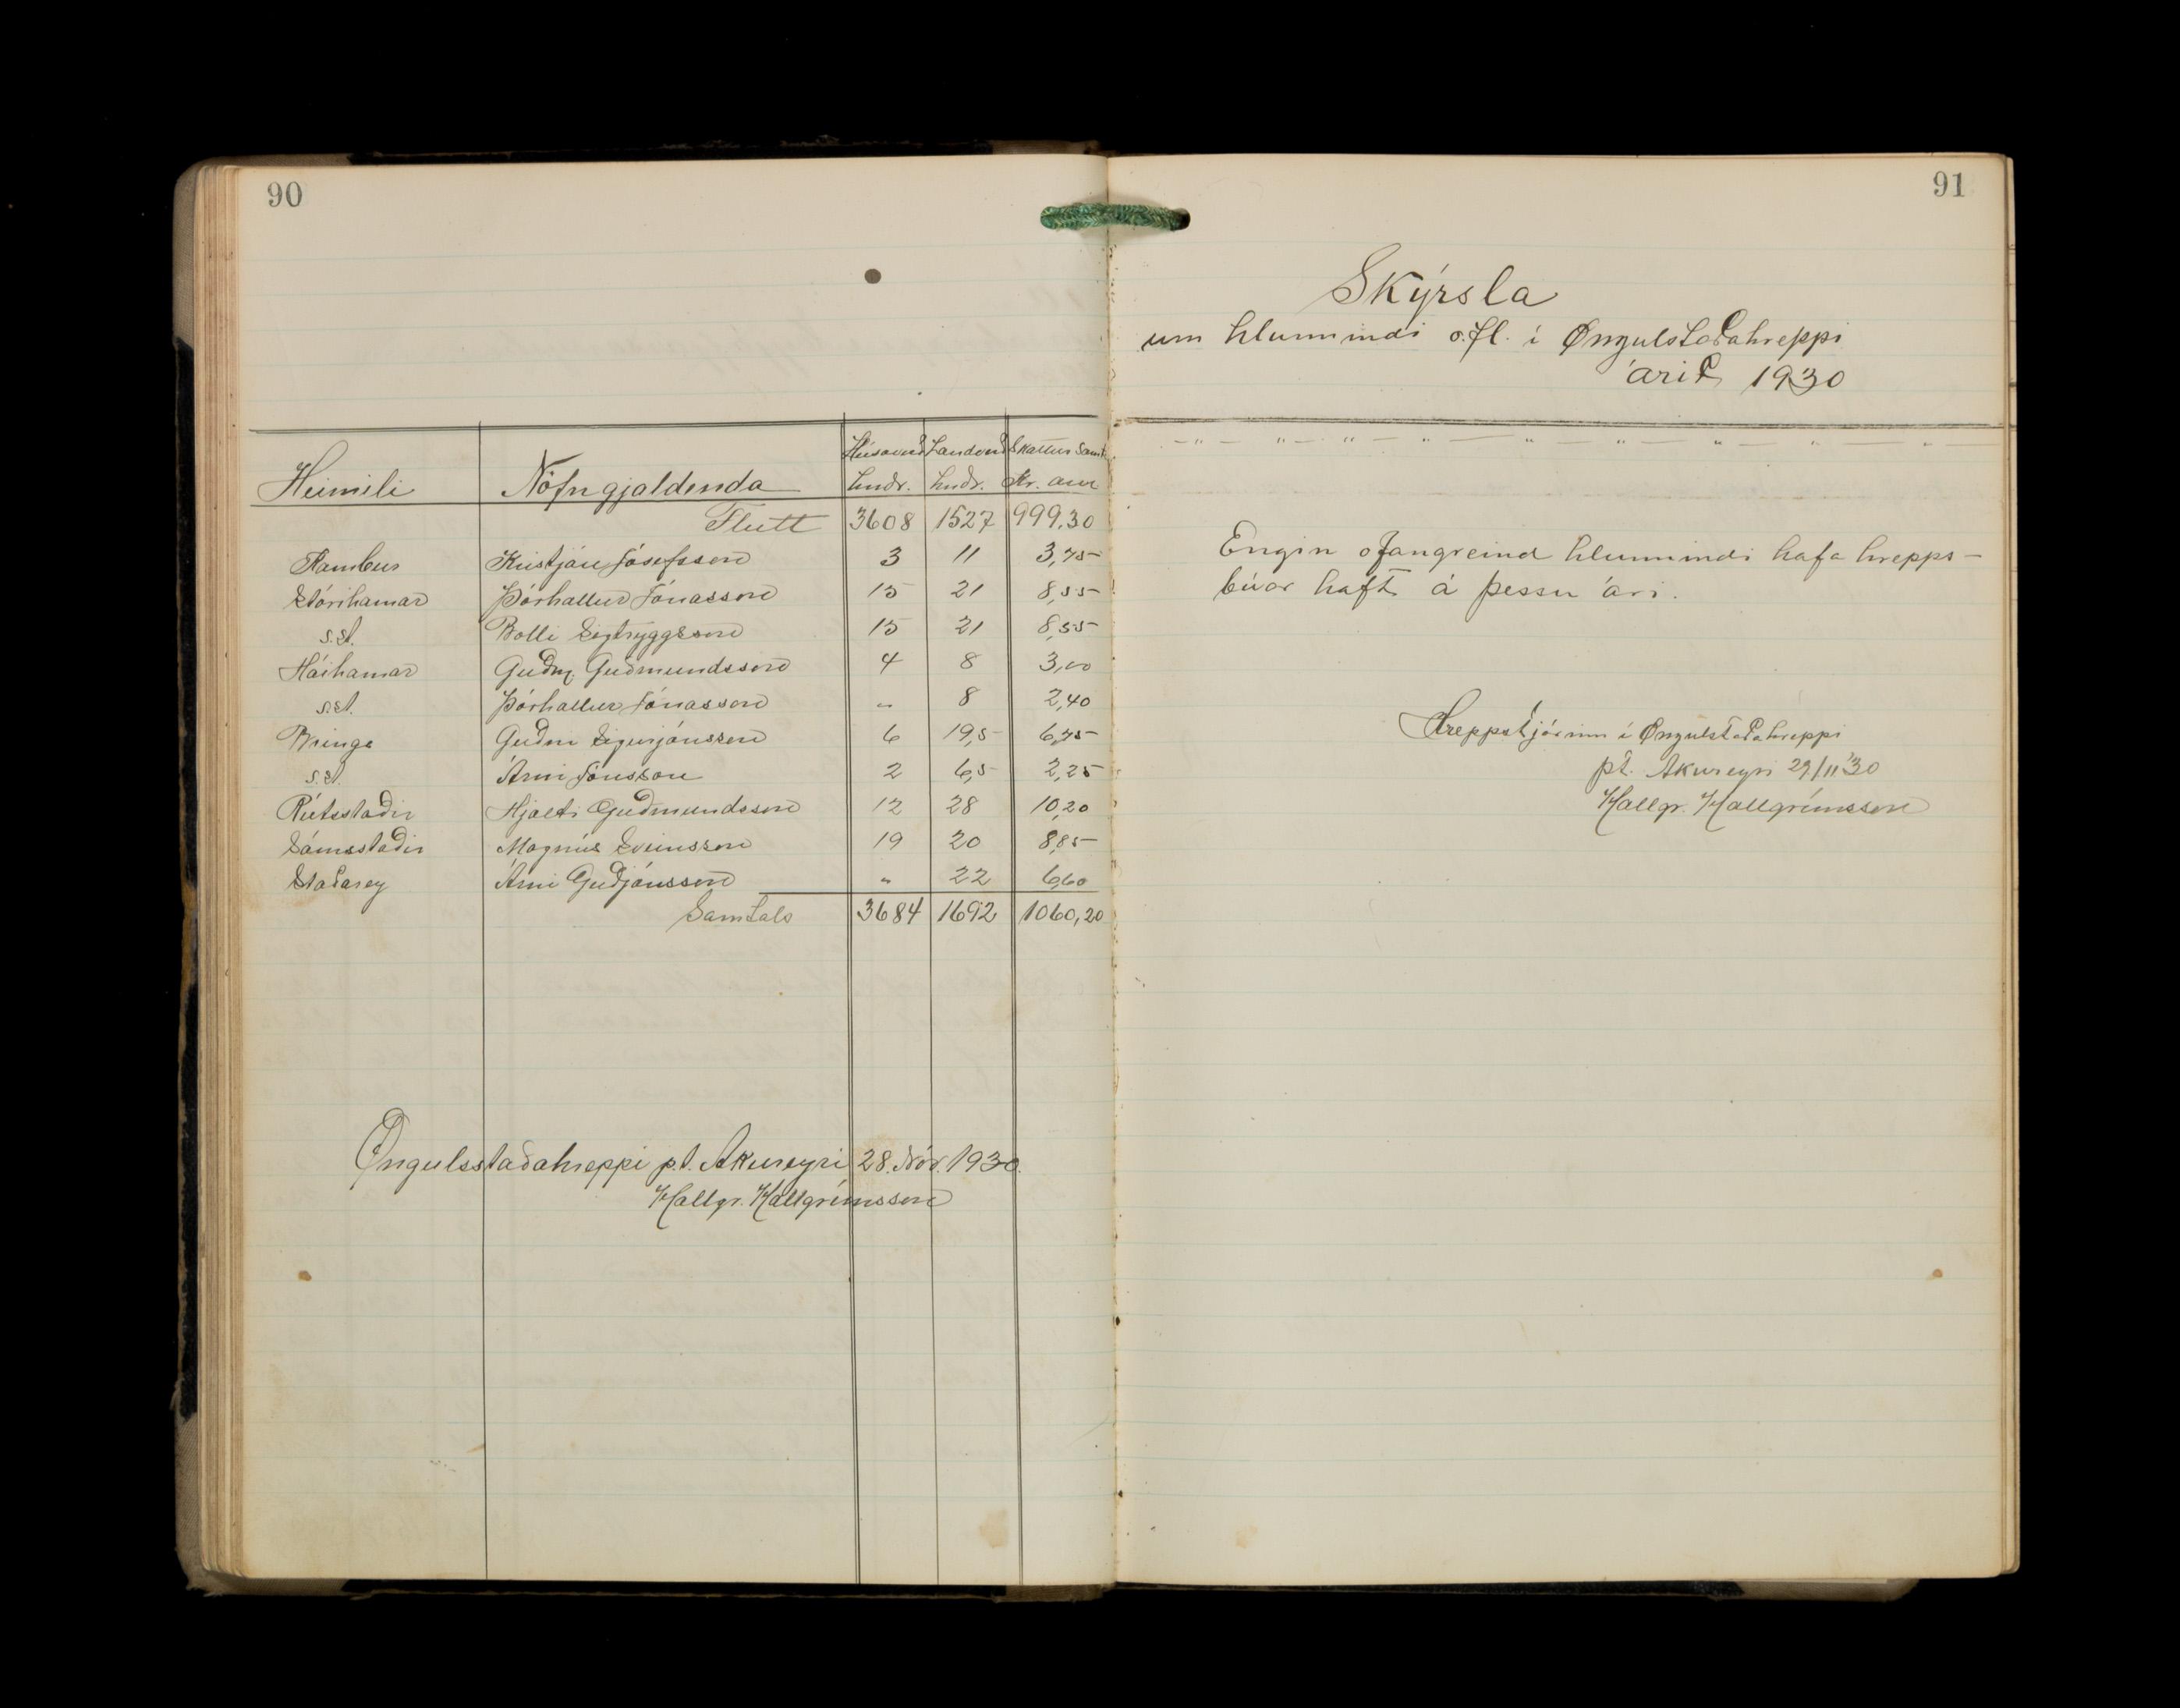 90
Heimili Nöfn gjaldenda Húsaverð Landverð Skattur Samt.
hndr. hndr. Kr. aur
Flutt 3608 1527 999,30
Kambur Kristján Jósefsson 3 11 3,75
Stórihamar Þórhallur Jónasson 15 21 8,55
s.st. Bolli Sigtryggsson 15 21 8,55
Háihamar Guðm. Guðmundsson 4 8 3,00
s.st. Þórhallur Jónasson " 8 2,40
Bringa Guðm Sigurjónsson 6 19,5 6,75
s.st. Árni Jónsson 2 6,5 2,25
Rútsstaðir Hjalti Guðmundsson 12 28 10,20
Sámsstaðir Magnús Sveinsson 19 20 8,85
Staðarey Árni Guðjónsson " 22 6,60
Samtals 3684 1692 1060,20
Öngulsstaðahreppi p.t. Akureyri 28. Nóv. 1930.
Hallgr. Hallgrímsson
91
Skýrsla
um hlunnindi o.fl. í Øngulstaðahreppi
árið 1930
— " — " — " — " — " — " — " — " — " —
Engin ofangreind hlunnindi hafa hrepps-
búar haft á þessu ári.
Hreppstjórinn í Øngulstaðahreppi
pt. Akureyri 29/11 '30
Hallgr. Hallgrímsson